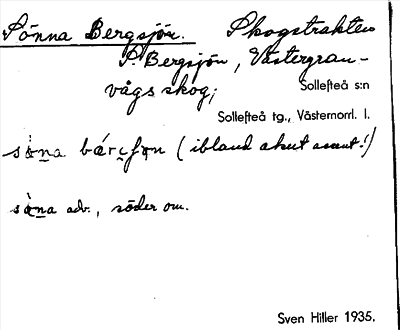 Sönna Bergsjön. Skogstrakten
S. Bergsjön, Västergran-
vågs skog;
Sollefteå s:n
Sollefteå tg., Västernorrl. l.
(ibland akut accent!)
adv., söder om.
Sven Hiller 1935.